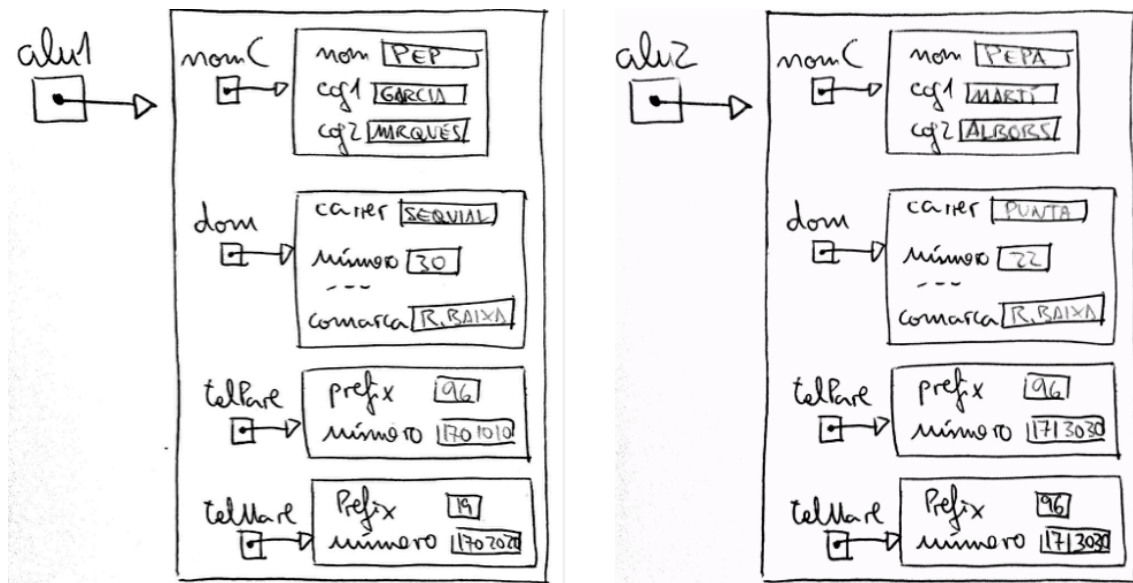 alu1
nomC
nom PEP
cog1 GARCIA
cog2 MARQUÉS
dom
carrer SEQUIAL
número 30
---
comarca R.BAIXA
telPare
prefix 96
número 1701010
telMare
Prefix 19
número 1702020
alu2
nomC
nom PEPA
cog1 MARTÍ
cog2 ALBORS
dom
carrer PUNTA
número 22
---
comarca R.BAIXA
telPare
prefix 96
número 1713030
telMare
Prefix 96
número 1713030